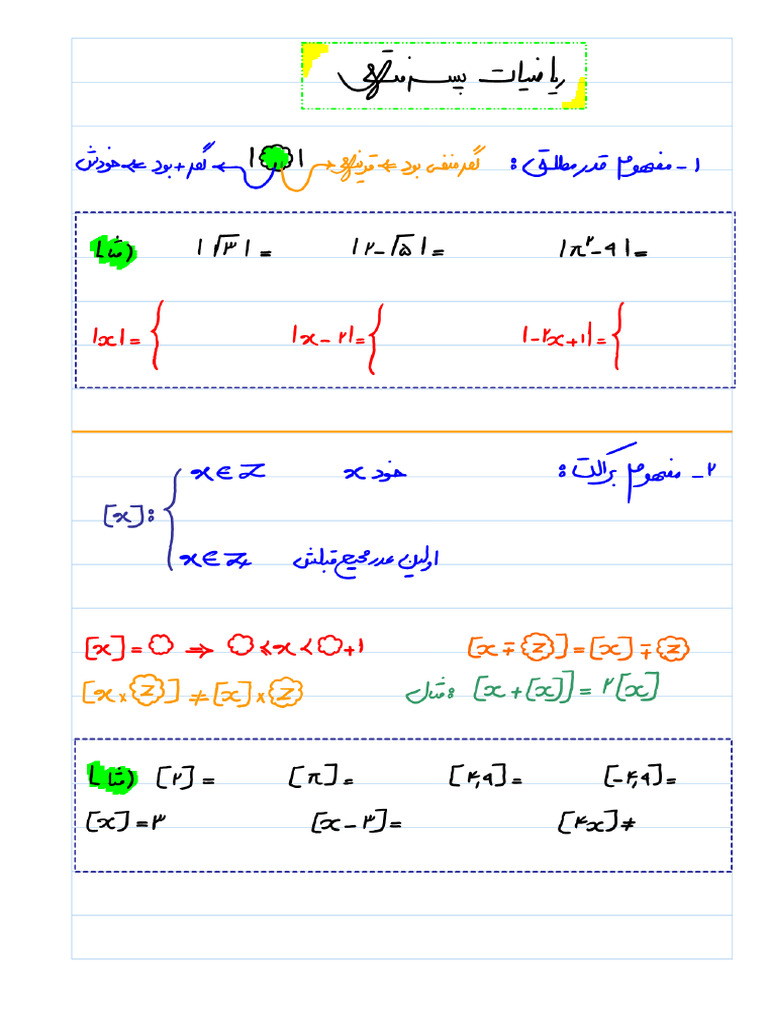 ریاضیات پسر منتهی
۱- مفهوم قدر مطلق : گه منفی بود ⇐ قرینه ← | | → گه + بود ⇐ خودش
مثال) |√۳| = |۲-√۵| = |π²-۹| =
|x| = { |x-۲| = { |-۲x+۱| = {
۲- مفهوم براکت :
[x] : {
x ∈ Z خود x
x ∉ Z اولین عدد صحیح قبلش
[x] = ○ ⇒ ○ ≤ x < ○+۱ [x ∓ Z] = [x] ∓ Z
[x × Z] ≠ [x] × Z مثال: [x + [x]] = ۲[x]
مثال) [۲] = [π] = [۴,۹] = [-۲,۹] =
[x] = ۳ [x-۳] = [۴x] ≠